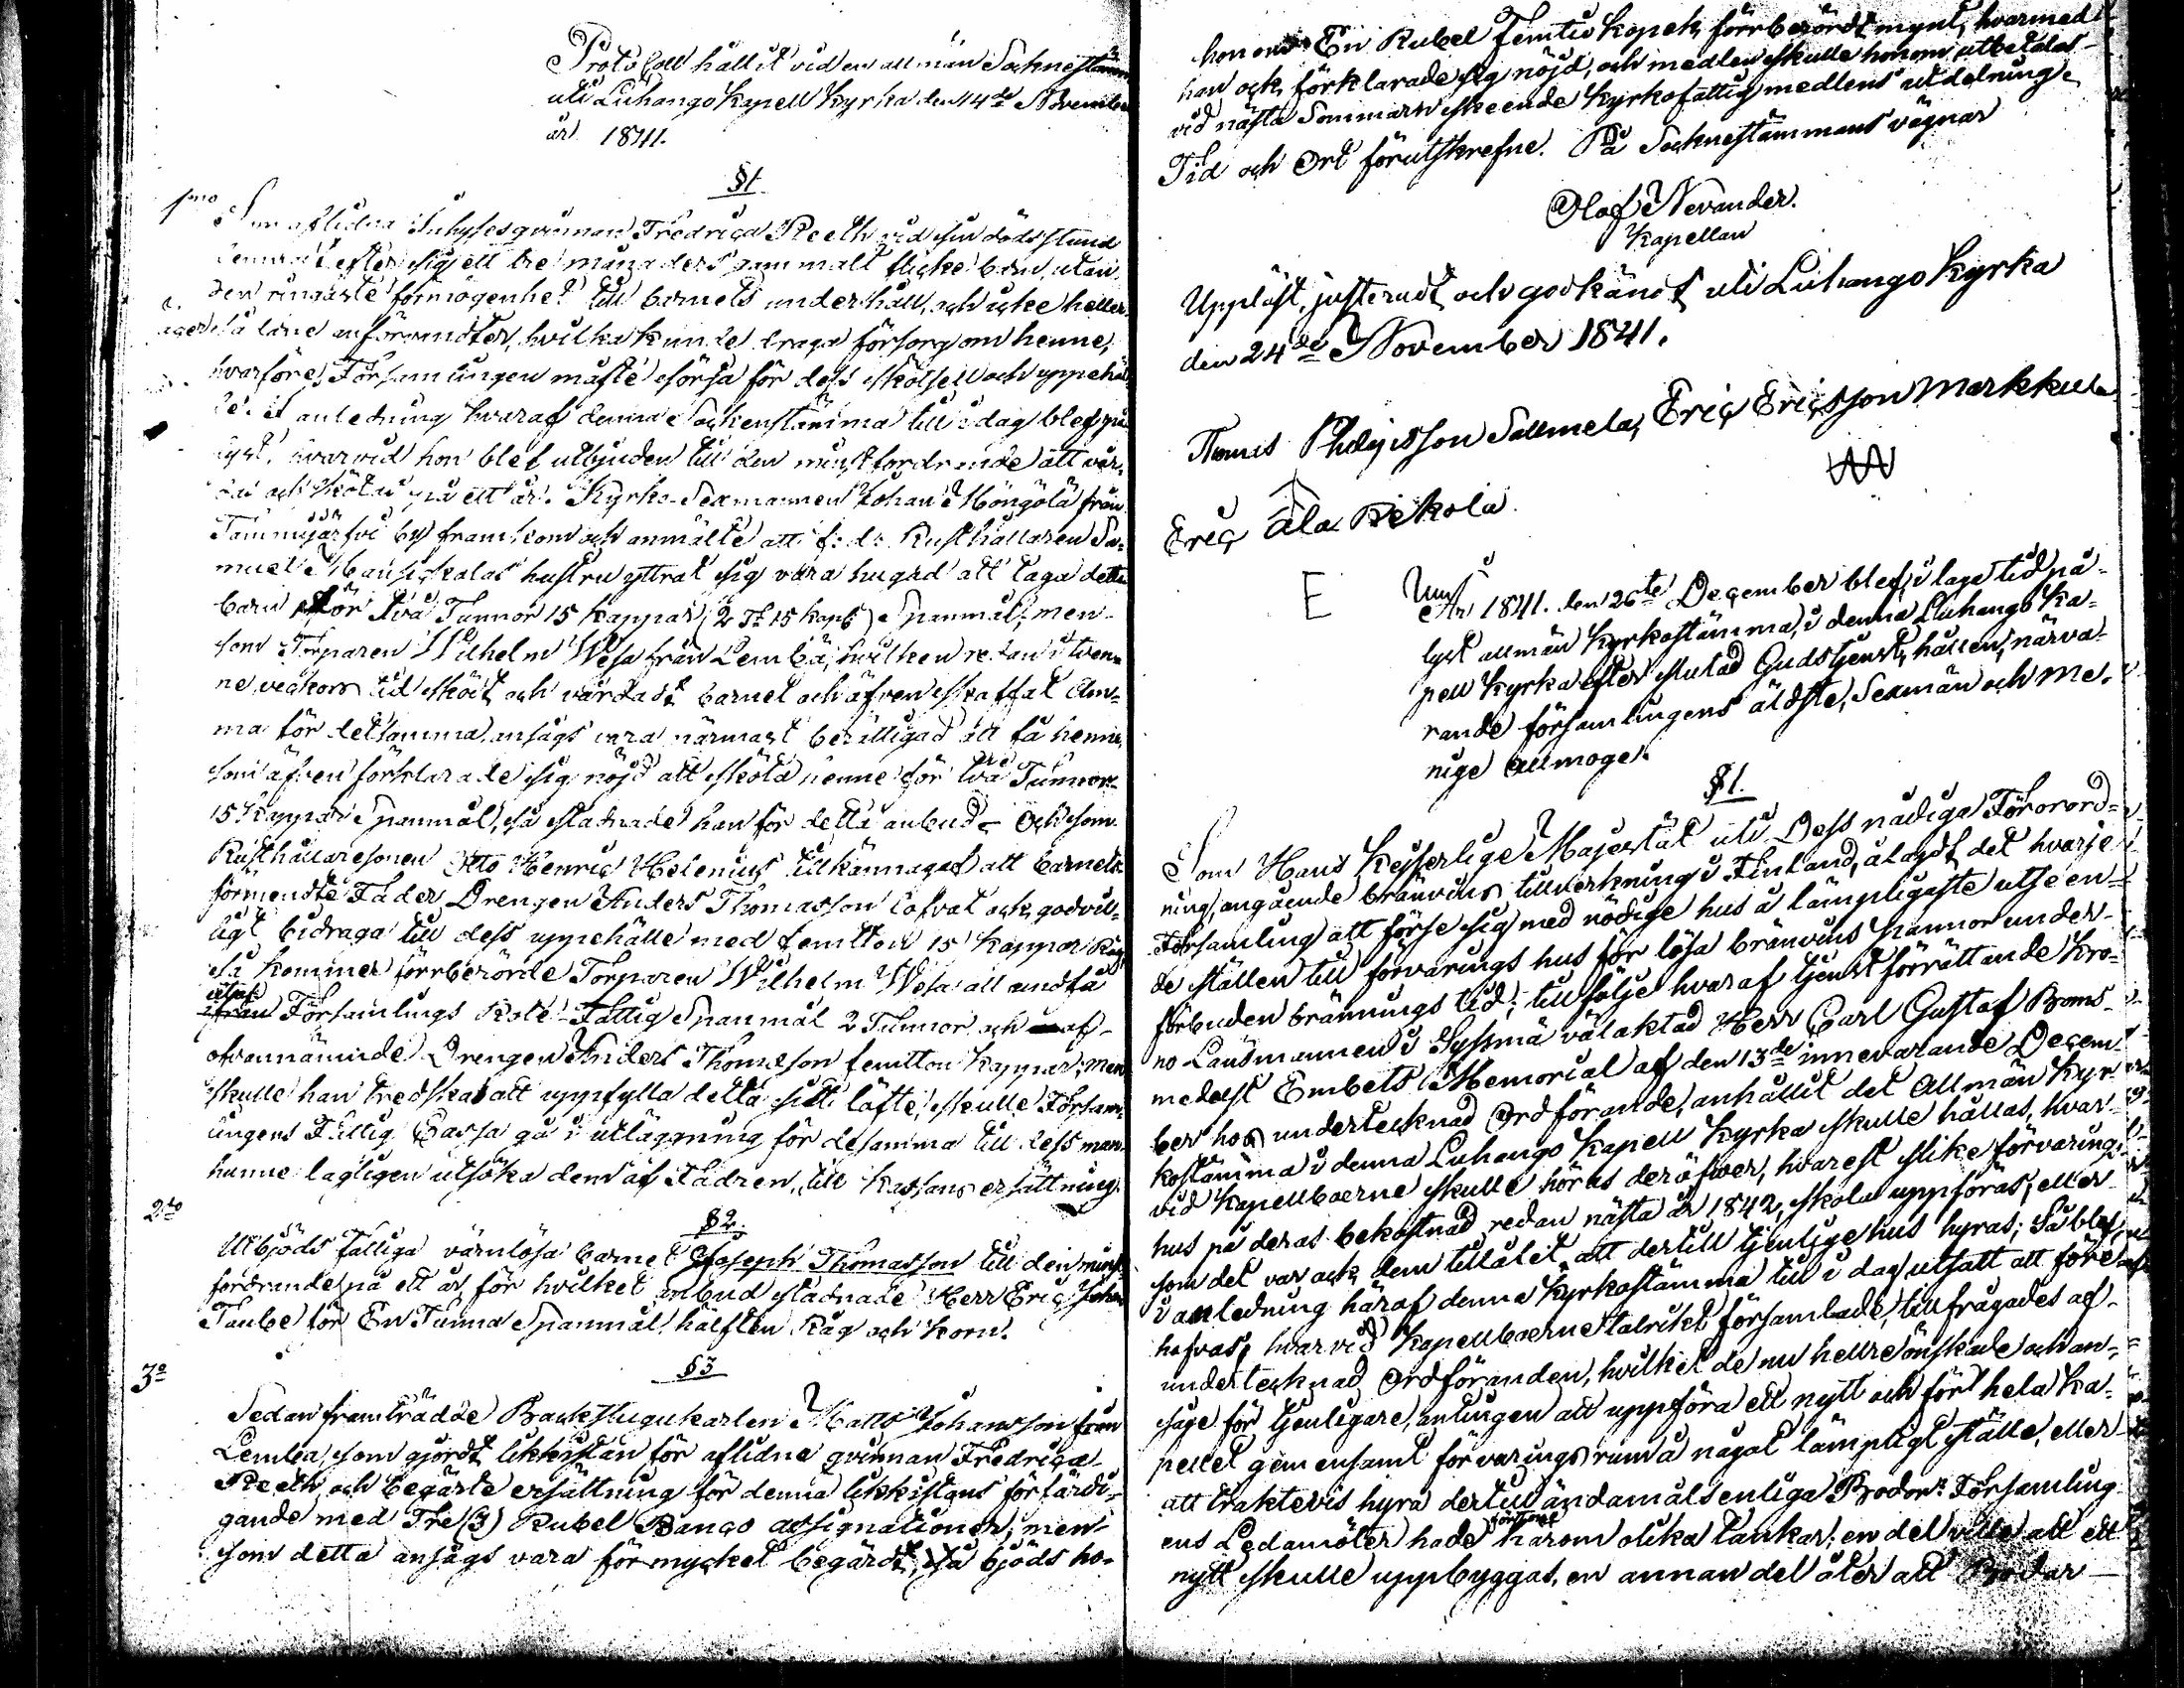 Protocoll hållit vid en allmän Sockneståmma
uti Luhango Kapell Kyrka den 14de November
år 1841.
§1
1mo
Som aflidna Inhyses qvinnan Fredrica Reeth vid sin dödsstund
lemnat efter sig ett tre månaders gammalt flicke barn, utan
den ringaste förmögenhet till barnets underhåll, och icke heller
äger så läne anförvandter, hvilka kunde draga försorg om henne,
hvarföre Församlingen måste sörja för dess skötsel och uppehäl-
le. I anledning hvaraf denna Sockenstämma till i dag blef på-
lyst, hvarvid hon blef utbjuden till den minst fordrande att vår-
das och skötas på ett år. Kyrko-Sexmannen Johan Möngölä från
Tammijärfvi by framkom och anmälte att f: d: Rusthållaren Sa-
muel Mansikkalas hustru yttrat sig vara hugad att taga detta
barn för två Tunnor 15 kappar (2 Tr 15 kapr) Spanmål, men
som Torparen Wilhelm Wesa från Lembä, hvilken redan i tven-
ne veckors tid skött och vårdadt barnet och äfven skaffat Am-
ma för detsamma, ansågs vara närmast berättigad att få henne,
som äfven förklarade sig nöjd att sköta henne för två Tunnor
15 kappar Spanmål, så stadnade han för detta anbud. Och som
Rusthållaresonen Otto Henric Helenius tillkännagaf att barnets
förmendte Fader Drengen Anders Thomasson lofvat och godvil-
ligt bidraga till dess uppehälle med femtton 15 kappar Råg,
så kommer förrberörde Torparen Wilhelm Wesa att undfå
utaf
från Församlings Rote-Fattig Spanmål 2 Tunnor och af
ofvannämnde Drengen Anders Thomasson femtton kappar; men
skulle han tredskas att uppfylla detta sitt löfte, skulle Försam-
lingens Fattig Cassa gå i utläggning för desamma till dess man
hunne lagligen utsöka dem af Fadren, till Kassans ersättning.
2do
§2.
Utbjöds fattiga värnlösa barnet Joseph Thomasson till den minst
fordrande på ett år, för hvilket anbud stadnade Herr Eric Johan
Taube för En Tunna Spanmål, hälften Råg och Korn.
3o
§3
Sedan framträdde Backstugukarlen Matts Johansson från
Lemba, som gjordt likkistan för aflidne qvinnan Fredrica
Reeth och begärte ersättning för denna likkistans förfärdi-
gande med Tre (3) Rubel Banco assignationer; men
som detta ansågs vara för mycket begärdt, så bjöds ho-
honom En Rubel Femtio Kopek, förrberördt mynt, hvarmed
han ock förklarade sig nöjd, och medlen skulle honom utbetalas
vid nästa Sommarn skeende Kyrkofattig medlens utdelning.
Tid och Ort förutskrefne. På Socknestämmans vägnar
Olof Nevander.
Kapellan
Uppläst, justeradt och godkändt uti Luhango Kyrka
den 24de November 1841.
Thomas Philipsson Sallmela, Eric Ericsson Markkula
Eric Ala Pekola
E
År 1841. den 26te December blef, i laga tid på-
lyst allmän Kyrkostämma, i denna Luhango Ka-
pell Kyrka efter slutad Gudstjenst, hållen, närva-
rande församlingens äldste, Sexmän och me-
nige Allmoge.
§1.
Som Hans Kejserlige Majestät uti Dess nådiga Förord-
ning, angående bränvins tillverkning i Finland, ålagdt det hvarje
Församling att förse sig med nödige hus å lämpligaste utseen-
de ställen till förvarings hus för lösa bränvins pannor under
förbuden bränningstid; till följe hvaraf tjenstförrättande Kro-
no Länsmannen i Sysmä välaktad Herr Carl Gustaf Boms
medelst Embets Memorial af den 13de innevarande Decem-
ber hos undertecknad Ordförande, anhållit det Allmän Kyr-
kostämma i denna Luhango Kapell Kyrka skulle hållas, hvar-
vid Kapellboerne skulle höras deröfver, hvarest slike förvarings
hus på deras bekostnad redan nästa år 1842, skola uppföras, eller
som det var ock dem tillåtit att dertill tjenlige hus hyras; Så blef,
i anledning häraf denna Kyrkostämma till i dag utsatt att före-
hafvas, hvarvid Kapellboerne talrikt församlade, tillfrågades af
undertecknad Ordföranden, hvilket de nu hellre önskade och an-
såge för tjenligare, antingen att uppföra ett nytt och för hela Ka-
pellet gemensamt förvaringsrum å något lämpligt ställe, eller
att traktevis hyra dertill ändamålsenliga Bodor. Församling-
ens Ledamöter hade härom olika tankar; en del ville att ett
nytt skulle uppbyggas, en annan del åter att Bodar